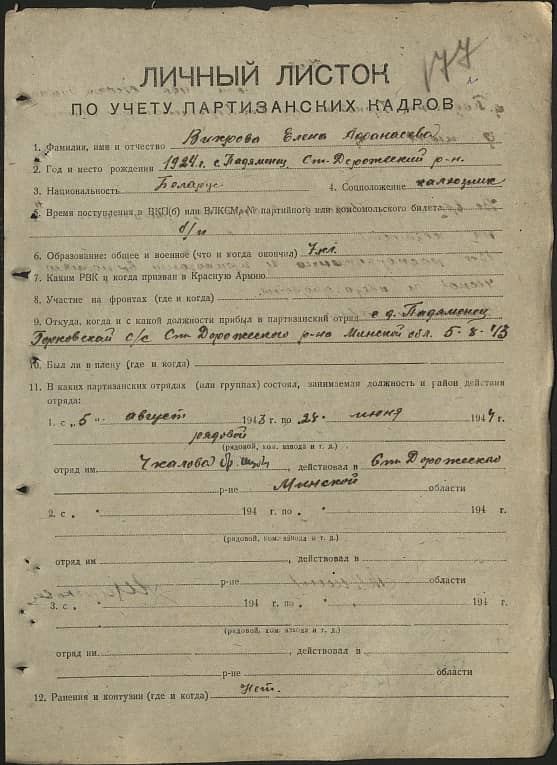 177
ЛИЧНЫЙ ЛИСТОК
ПО УЧЕТУ ПАРТИЗАНСКИХ КАДРОВ
1. Фамилия, имя и отчество Вихрова Елена Афанасевна
2. Год и место рождения 1924 г. с. Падяменец Ст-Дорожский р-н.
3. Национальность Беларус 4. Соцположение
5. Время поступления в ВКП(б) или ВЛКСМ, № партийного или комсомольского билета
б/п
6. Образование: общее и военное (что и когда окончил) 7 кл.
7. Каким РВК и когда призван в Красную Армию
8. Участие на фронтах (где и когда)
9. Откуда, когда и с какой должности прибыл в партизанский отряд с д. Падяменец
Горковской с/с Ст-Дорожского р-на Минской обл. 5-8-43
10. Был ли в плену (где и когда)
11. В каких партизанских отрядах (или группах) состоял, занимаемая должность и район действия
отряда:
1. с „5" август 1943 г. по 28 июня 1944 г.
рядовой
(рядовой, ком. взвода и т. д.)
отряд им. Чкалова бр. , действовал в Ст-Дорожского
р-не Минской области
2. с „ " 194 г. по „ " 194 г.
(рядовой, ком. взвода и т. д.)
отряд им , действовал в
р-не области
3. с „ " 194 г. по „ " 194 г.
(рядовой, ком. взвода и т. д.)
отряд им. , действовал в
р-не области
12. Ранения и контузии (где и когда) Нет.